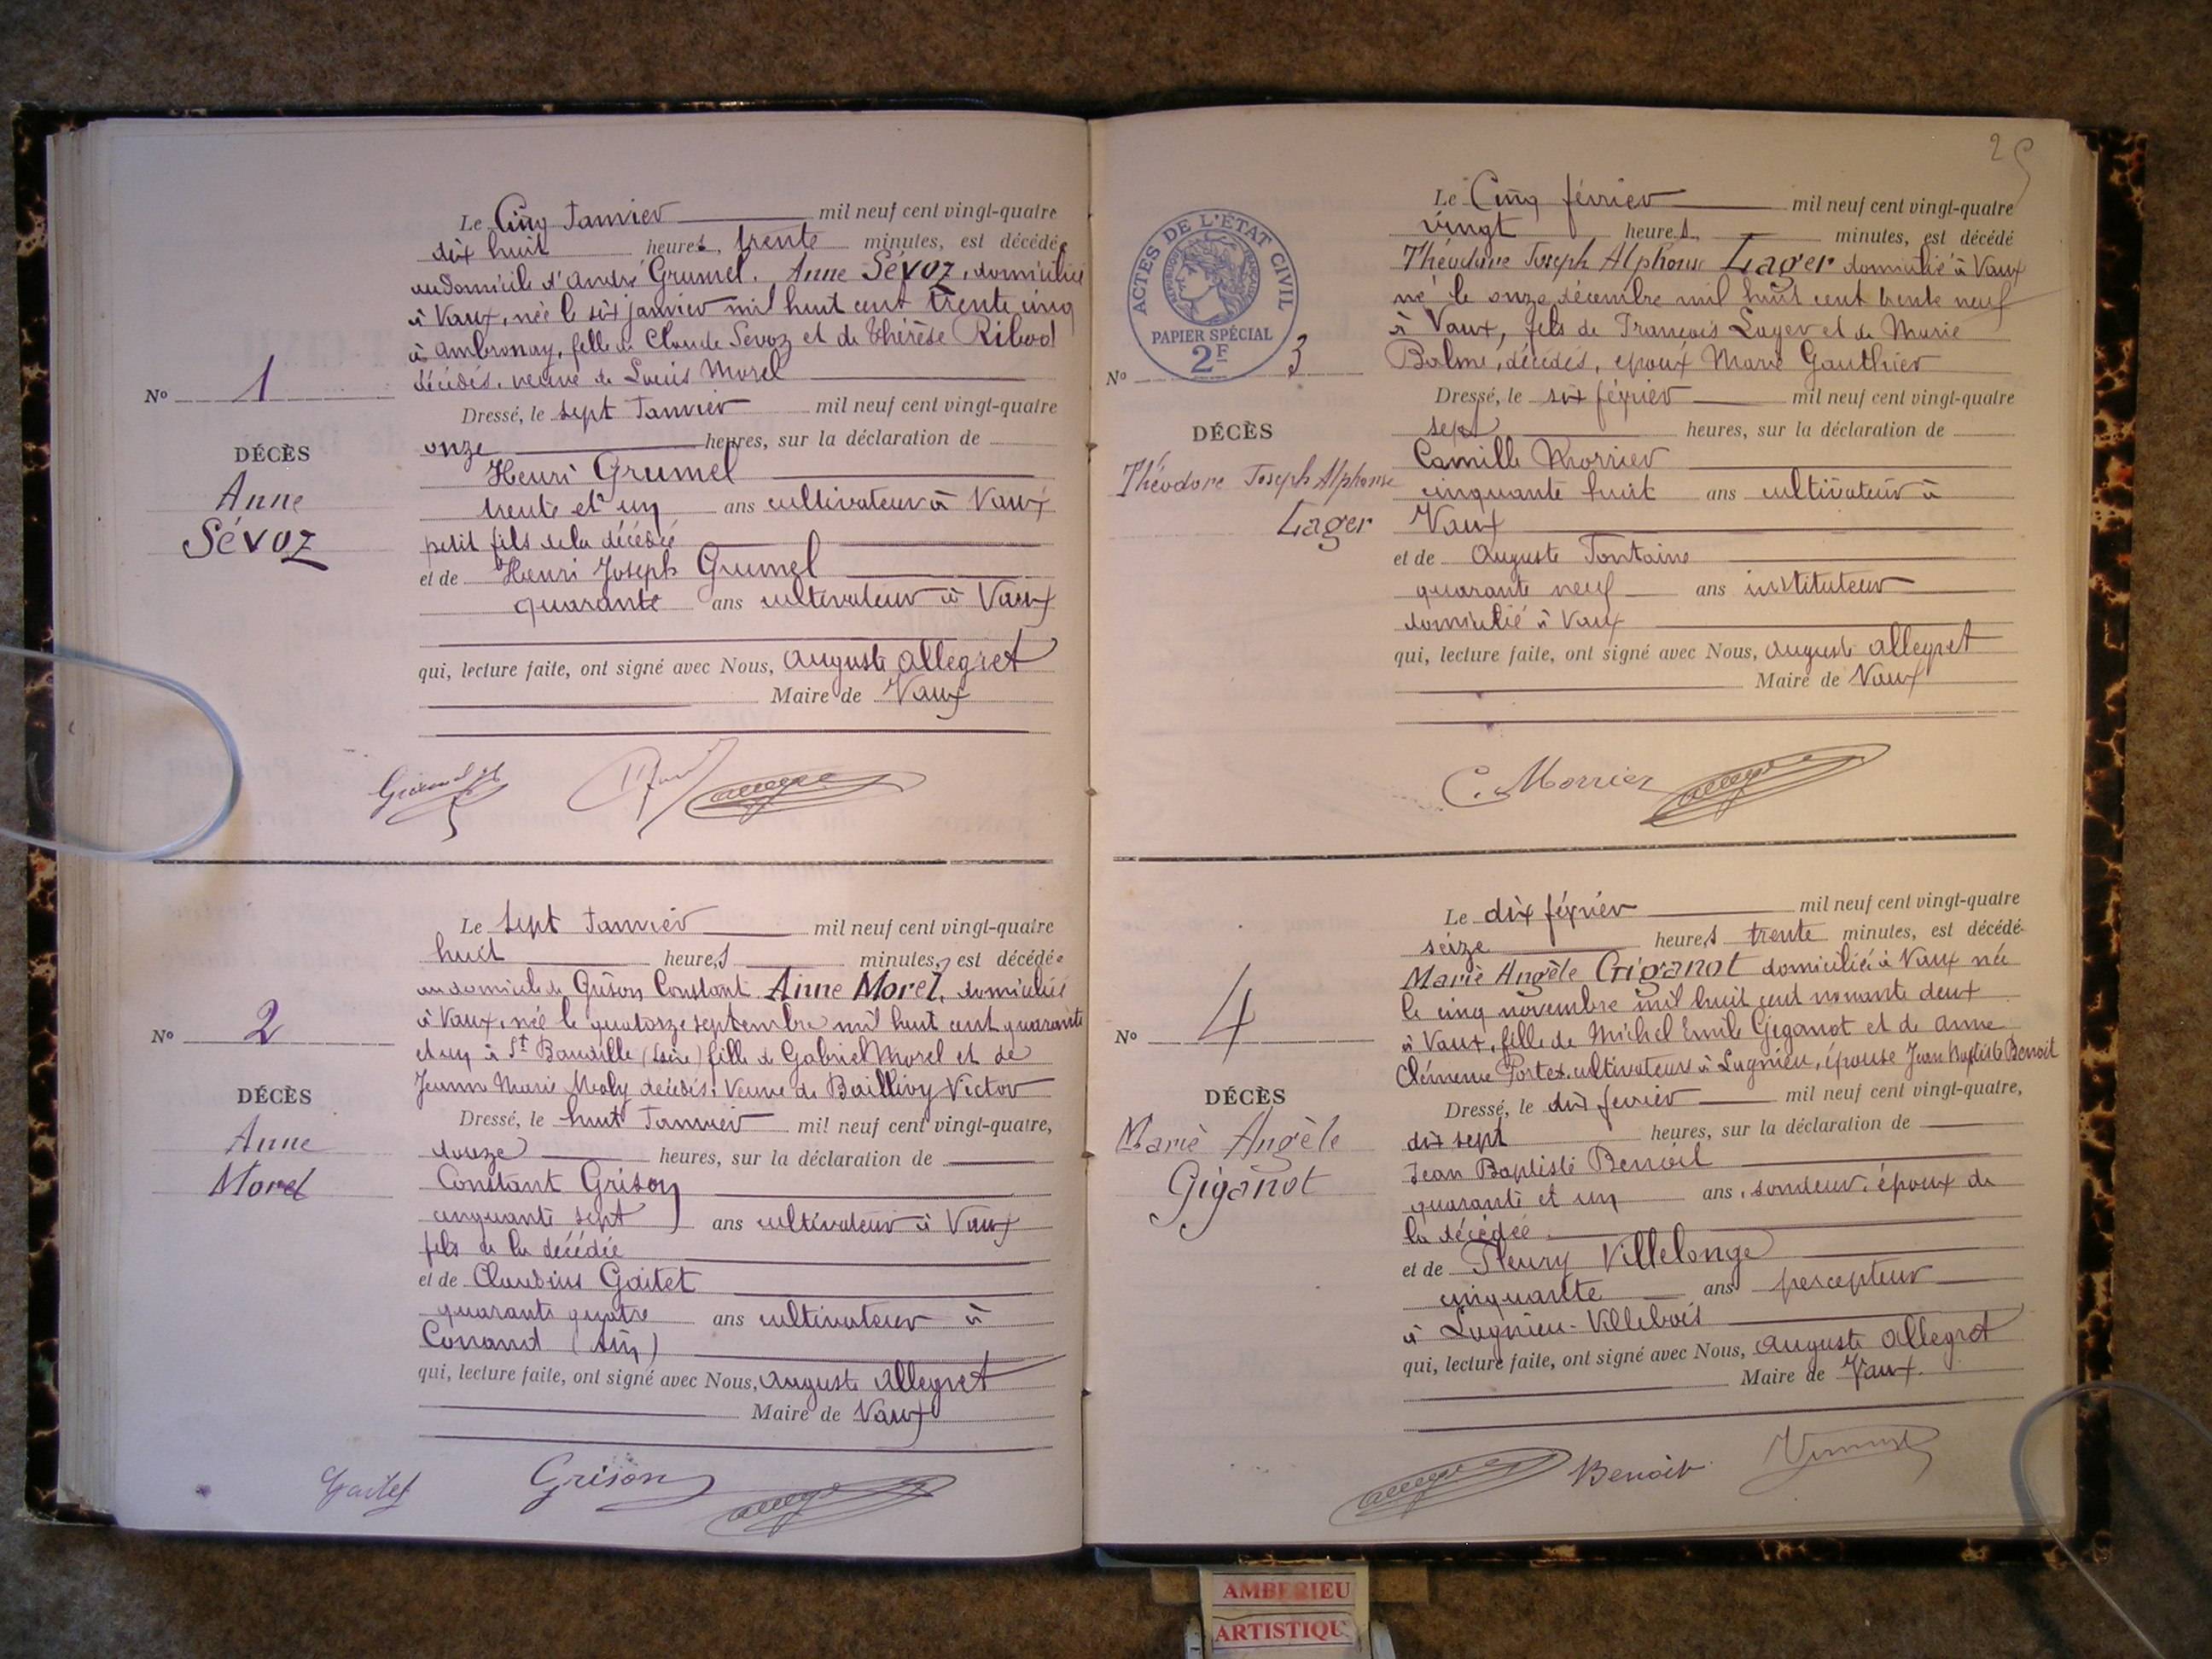 Le Cinq Janvier mil neuf cent vingt-quatre
dix huit heures, trente minutes, est décédée
au domicile d'André Grumel. Anne Sévoz, domiciliée
à Vaux, née le six janvier mil huit cent trente cinq
à Ambronay, fille de Claude Sevoz et de Thérèse Ribod
décédés, veuve de Louis Morel
Nº 1
Dressé, le sept Janvier mil neuf cent vingt-quatre
onze heures, sur la déclaration de
DÉCÈS
Anne
Sévoz
Henri Grumel
trente et un ans cultivateur à Vaux
petit fils de la décédée
et de Henri Joseph Grumel
quarante ans cultivateur à Vaux
qui, lecture faite, ont signé avec Nous, Auguste Allegret
Maire de Vaux
Le sept Janvier mil neuf cent vingt-quatre
huit heures minutes, est décédée
au domicile de Grison Constant Anne Morel, domiciliée
à Vaux, née le quatorze septembre mil huit cent quarante
et un à St Baudille (Isère) fille de Gabriel Morel et de
Jeanne Marie Mealy décédés. Veuve de Baillivy Victor
Nº 2
DÉCÈS
Anne
Morel
Dressé, le huit Janvier mil neuf cent vingt-quatre,
douze heures, sur la déclaration de
Constant Grison
cinquante sept ans cultivateur à Vaux
fils de la décédée
et de Claudius Gaitet
quarante quatre ans cultivateur à
Conand (Ain)
qui, lecture faite, ont signé avec Nous, Auguste Allegret
Maire de Vaux
Gaitet Grison Allegret
25
ACTES DE L'ÉTAT CIVIL
PAPIER SPÉCIAL
2F
Le Cinq février mil neuf cent vingt-quatre
vingt heures, minutes, est décédé
Théodore Joseph Alphonse Lager domicilié à Vaux
né le onze décembre mil huit cent trente neuf
à Vaux, fils de François Lager et de Marie
Balme, décédés, époux Marie Gauthier
Nº 3
DÉCÈS
Théodore Joseph Alphonse
Lager
Dressé, le six février mil neuf cent vingt-quatre
sept heures, sur la déclaration de
Camille Morrier
cinquante huit ans cultivateur à
Vaux
et de Auguste Fontaine
quarante neuf ans instituteur
domicilié à Vaux
qui, lecture faite, ont signé avec Nous, Auguste Allegret
Maire de Vaux
C. Morrier Allegret
Le dix février mil neuf cent vingt-quatre
seize heures trente minutes, est décédé
Marie Angèle Giganot domiciliée à Vaux née
le cinq novembre mil huit cent nonante deux
à Vaux, fille de Michel Emile Giganot et de Anne
Clémence Portex cultivateurs à Lagnieu, épouse Jean Baptiste Benoit
Nº 4
DÉCÈS
Marie Angèle
Giganot
Dressé, le dix fevrier mil neuf cent vingt-quatre,
dix sept heures, sur la déclaration de
Jean Baptiste Benoit
quarante et un ans, sondeur, époux de
la décédée
et de Fleury Villelonge
cinquante ans percepteur
à Lagnieu-Villebois
qui, lecture faite, ont signé avec Nous, Auguste Allegret
Maire de Vaux.
Allegret Benoit
AMBERIEU
ARTISTIQU